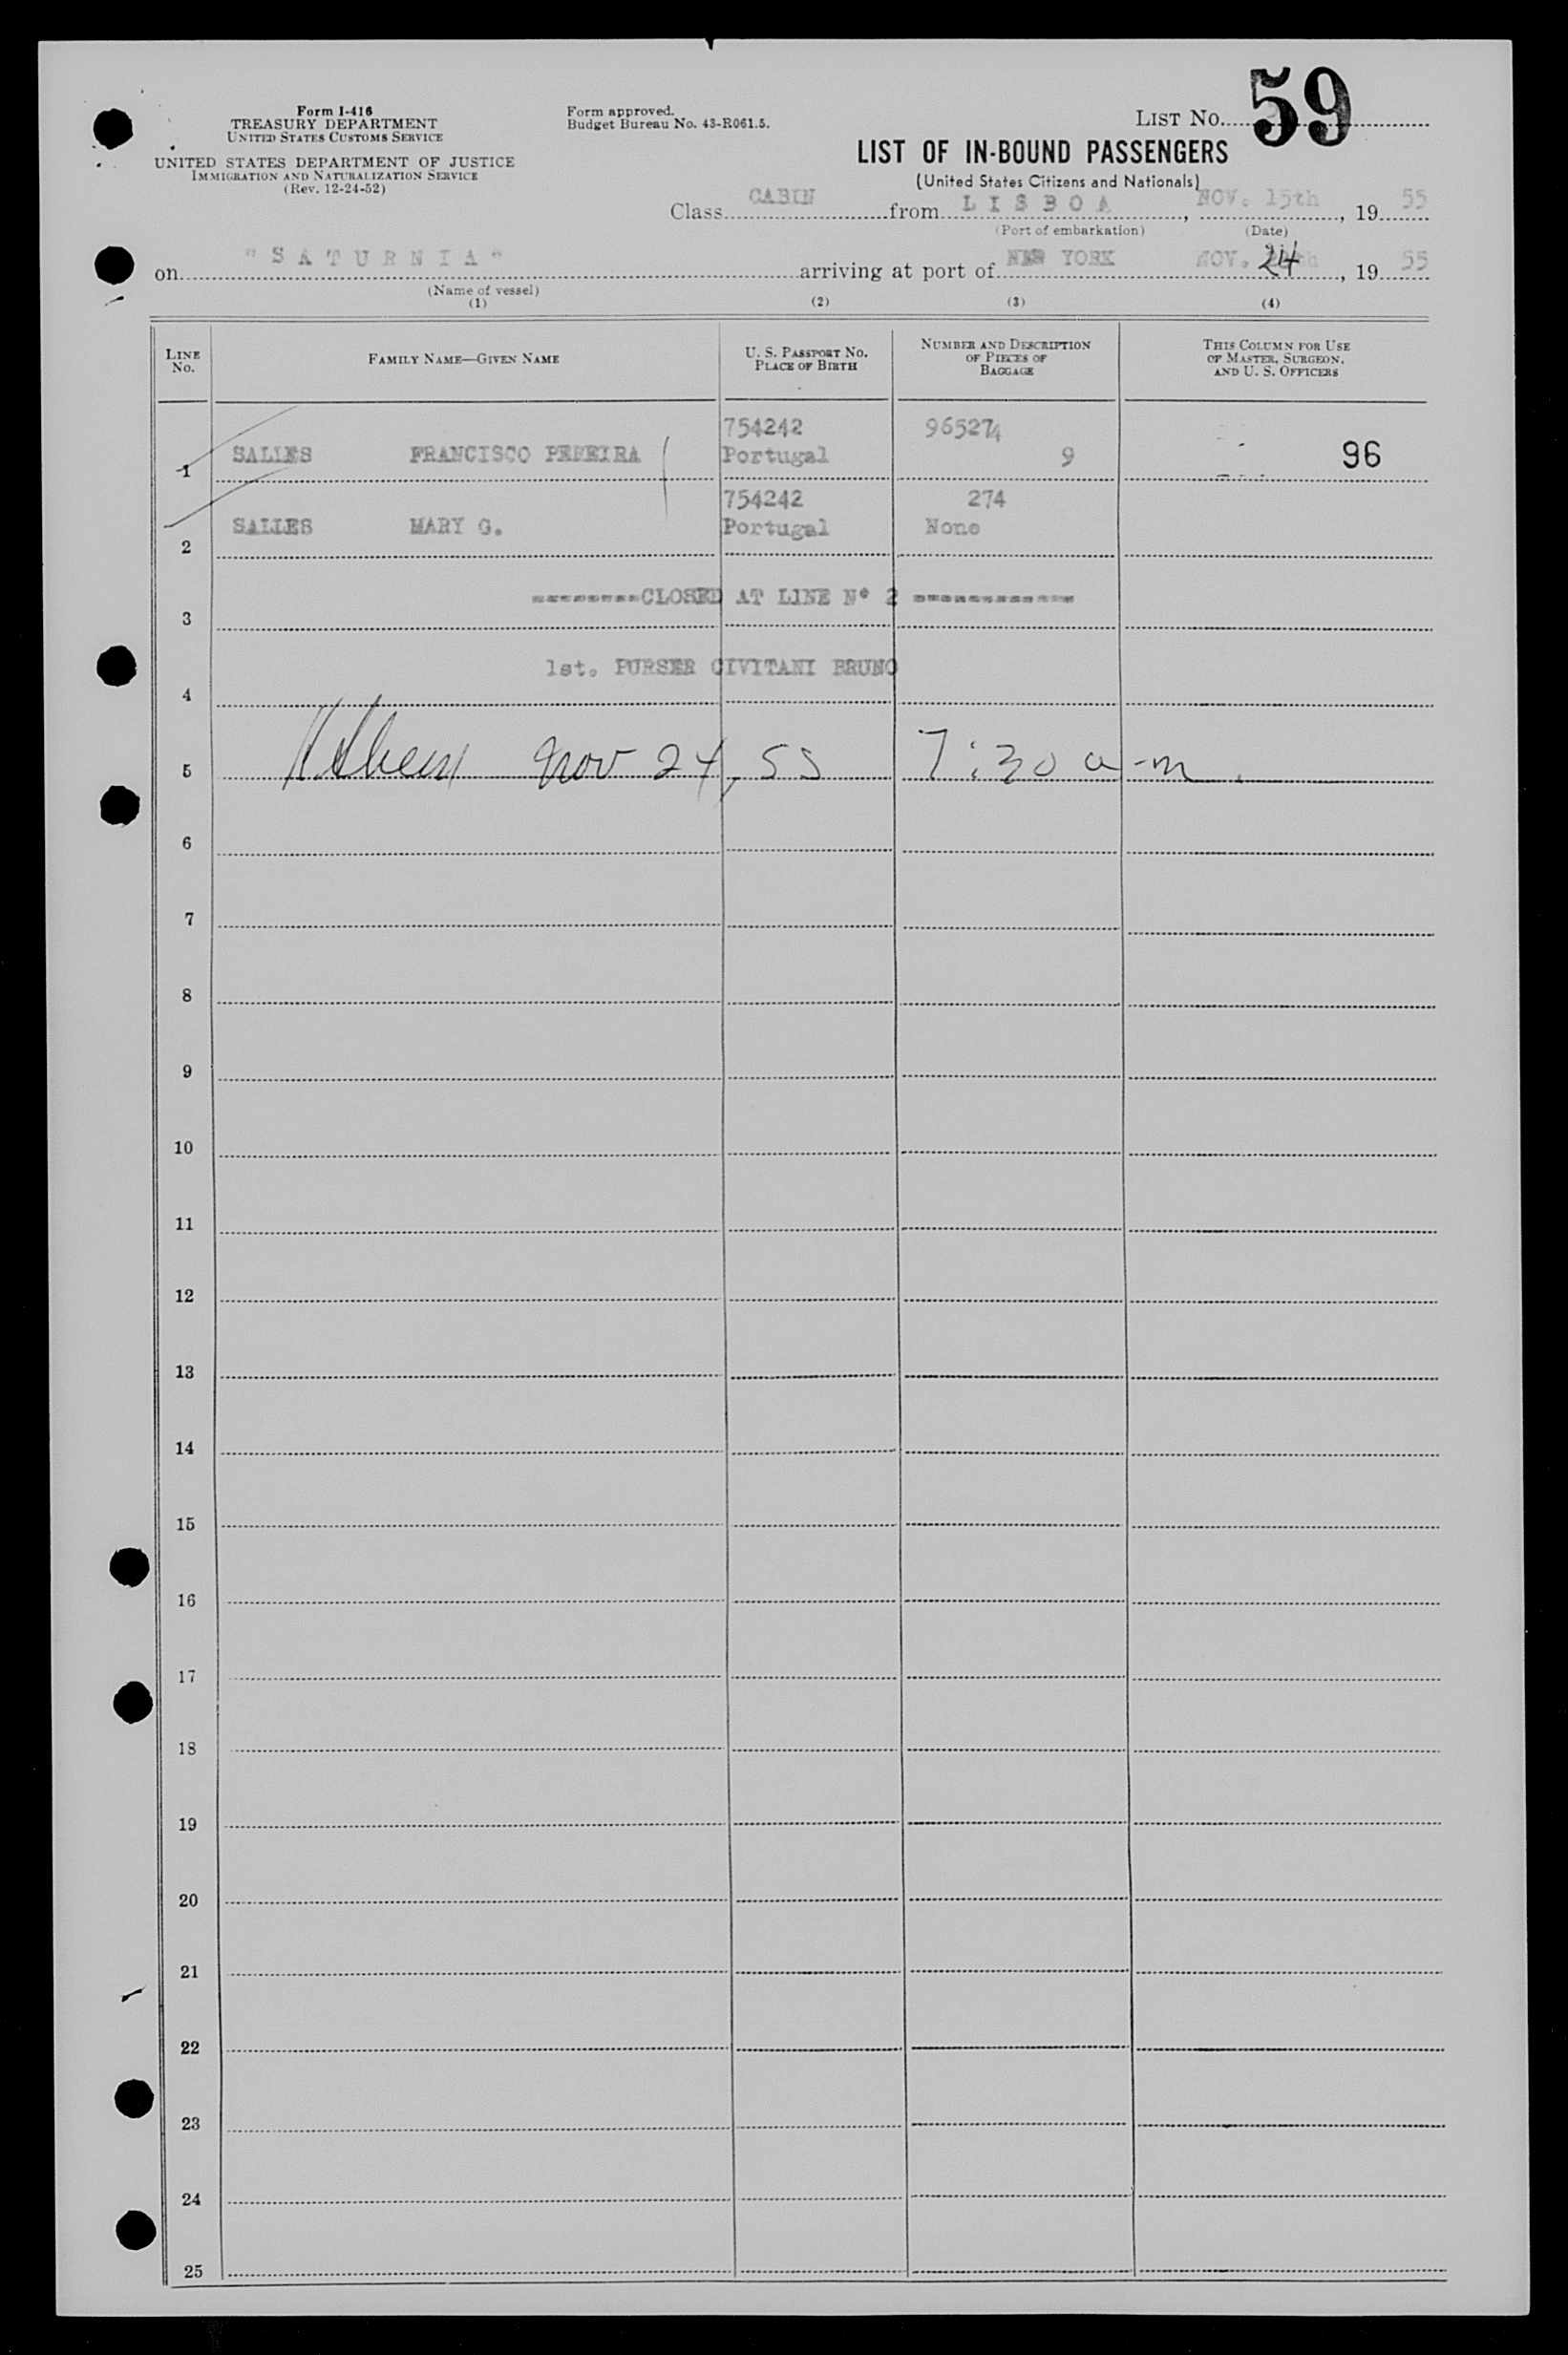 Form I-416
TREASURY DEPARTMENT
UNITED STATES CUSTOMS SERVICE
UNITED STATES DEPARTMENT OF JUSTICE
IMMIGRATION AND NATURALIZATION SERVICE
(Rev. 12-24-52)
Form approved.
Budget Bureau No. 43-R061.5.
LIST NO. 59
LIST OF IN-BOUND PASSENGERS
(United States Citizens and Nationals)
Class CABIN from LISBOA, NOV. 15th, 19 55
(Port of embarkation) (Date)
on "SATURNIA" arriving at port of NEW YORK NOV. 24, 19 55
(Name of vessel)
(1) (2) (3) (4)
LINE No. FAMILY NAME—GIVEN NAME U. S. PASSPORT NO. PLACE OF BIRTH NUMBER AND DESCRIPTION OF PIECES OF BAGGAGE THIS COLUMN FOR USE OF MASTER, SURGEON, AND U. S. OFFICERS
754242 965274
1 SALLES FRANCISCO PEREIRA Portugal 9 96
754242 274
2 SALLES MARY G. Portugal None
3 --------CLOSED AT LINE N° 2 ------------
4 1st. PURSER CIVITANI BRUNO
5 Nov 24, 55 7:30 a-m.
6
7
8
9
10
11
12
13
14
15
16
17
18
19
20
21
22
23
24
25